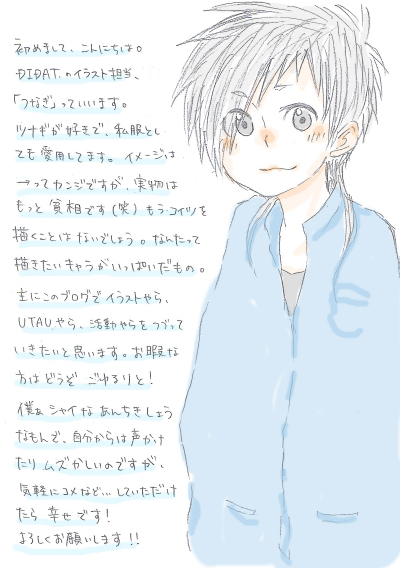 初めまして、こんにちは。
DIDAT.のイラスト担当、
「つなぎ」っていいます。
ツナギが好きで、私服とし
ても愛用してます。イメージは
→ってカンジですが、実物は
もっと貧相です(笑)もうコイツを
描くことはないでしょう。なんたって
描きたいキャラがいっぱいだもの。
主にこのブログでイラストやら、
UTAUやら、活動やらをつづって
いきたいと思います。お暇な
方はどうぞ ごゆるりと!
僕ぁシャイなあんちきしょう
なもんで、自分からは声かけ
たりムズかしいのですが、
気軽にコメなど…していただけ
たら幸せです!
よろしくお願いします!!